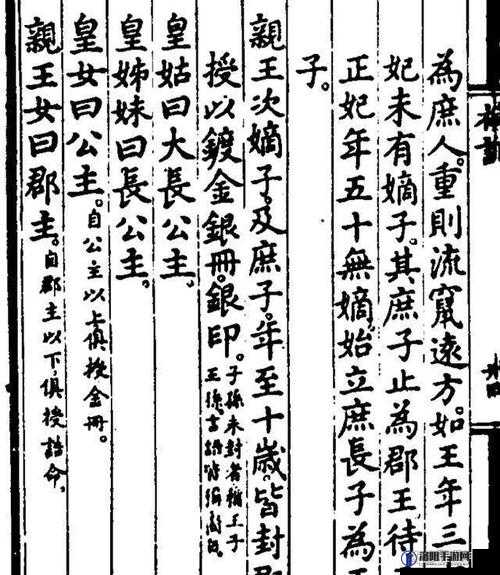 為庶人。重則流竄遠方。如王年三
妃未有嫡子。其庶子止為郡王。待
正妃年五十無嫡。始立庶長子為
子。
親王次嫡子。及庶子。年至十歲。皆封
授以鍍金銀冊。銀印。子孫未封者稱王子
王孫。
皇姑曰大長公主。
皇姊妹曰長公主。
皇女曰公主。自公主以上俱授金冊。
親王女曰郡主。自郡主以下俱授誥命。
洛阳手游网